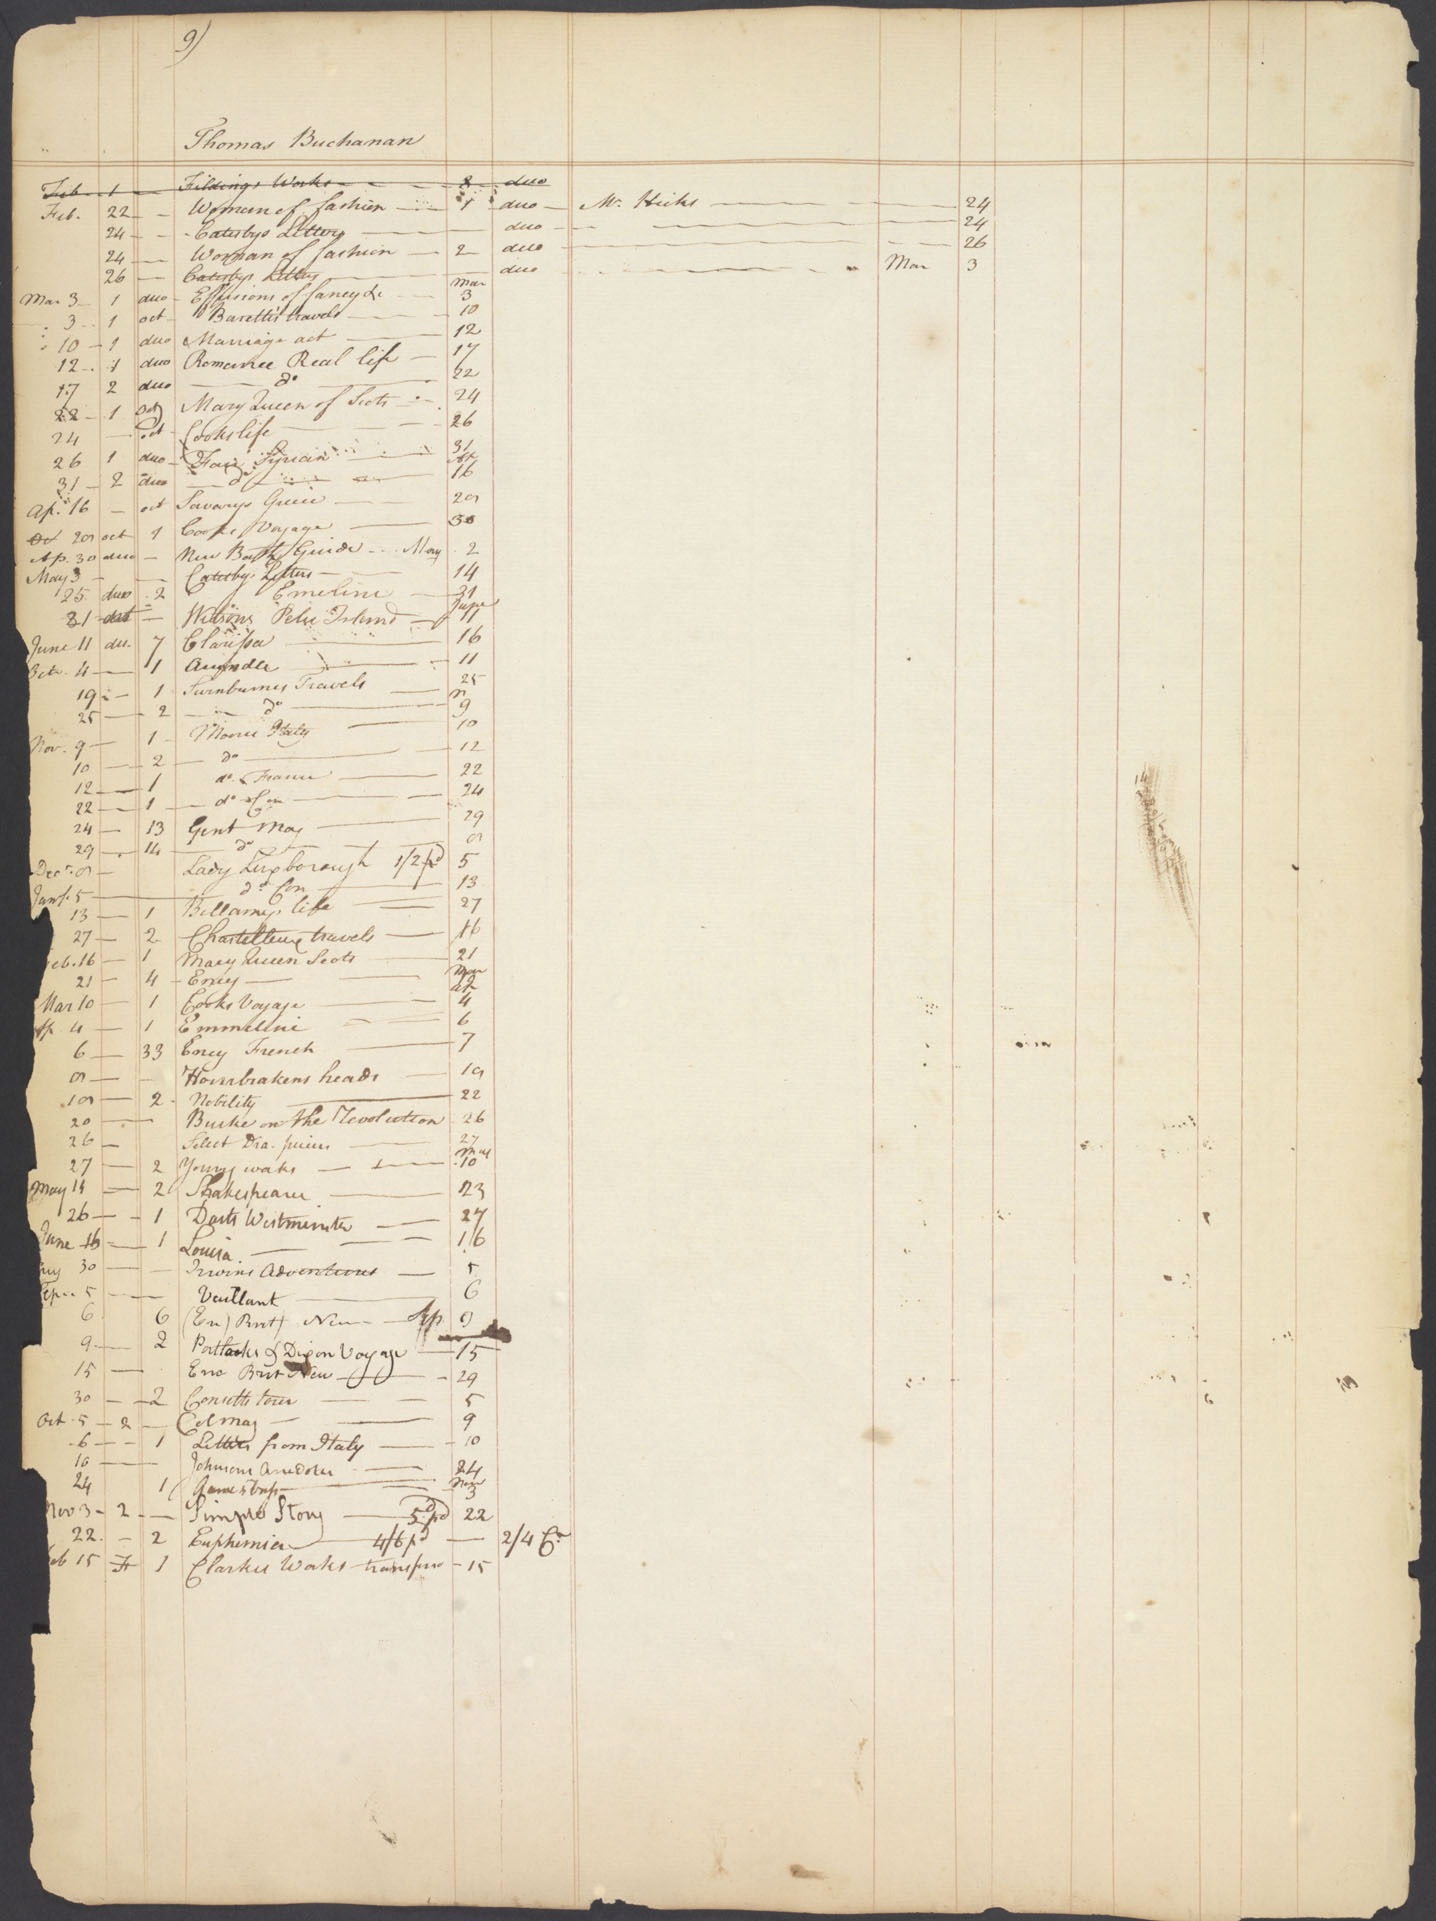 9)
Thomas Buchanan
Feb 1 Fildings Works 8 duo
Feb. 22 Woman of fashion 1 duo Mr. Hicks 24
24 Catesbys Letters duo 24
24 Woman of fashion 2 duo 26
26 Catesbys Letters duo Mar 3
Mar
Mar 3 1 duo Effusions of fancy &c 3
3 1 oct Barettis travels 10
10 1 duo Marriage act 12
12 1 duo Romance Real life 17
17 2 duo do 22
22 1 oct Mary Queen of Scots 24
24 oct Cooks life 26
26 1 duo Fair Syrian 31
31 2 duo do 16
Ap. 16 oct Savarys Greece 20
20 oct 1 Cooks Voyage 30
Ap. 30 duo New Bath Guide May 2
May 3 Catesbys Letters 14
25 duo 2 Emeline 31
June
31 Wilsons Pelew Island 11
June 11 du. 7 Clarissa 16
Octr. 4 1 Arundle 11
19 1 Swinburnes Travels 25
25 2 do 9
Nov. 9 1 Moores Italy 10
10 2 do 12
12 1 do France 22
22 1 do Con 24
24 13 Gent Mag 29
29 14 do
Decr. Lady Luxborough 1/2 pd 5
Jany. 5 do Con 13
13 1 Bellamys life 27
27 2 Chastelleux travels 16
eb. 16 1 Mary Queen Scots 21
Mar
21 4 Ency
Mar 10 1 Cooks Voyage 4
Ap. 4 1 Emmeline 6
6 33 Ency French 7
Hournbrakens heads
2 Nobility 22
20 Burke on the Revolution 26
26 Select Dra. pieces 27
27 2 Youngs works 10
May 14 2 Shakespeare 23
26 1 Darts Westminster 27
June 16 1 Louisa 16
30 Irwins Adventures 5
Sep.. 5 Vaillant 6
6 6 (En) Brit) New Sep 9
9 2 Portlocks & Dixon Voyage 15
15 Enc Brit New 29
30 2 Consetts tour 5
Oct. 5 2 Col mag 9
6 1 Letters from Italy 10
10 Johnsons Anecdotes 24
Nov
24 1 3
Nov 3 2 Simple Story 5d pd 22
22. 2 Euphemia 4/6 pd 2/4 Cr
eb 15 1 Clarkes Works transferr 15